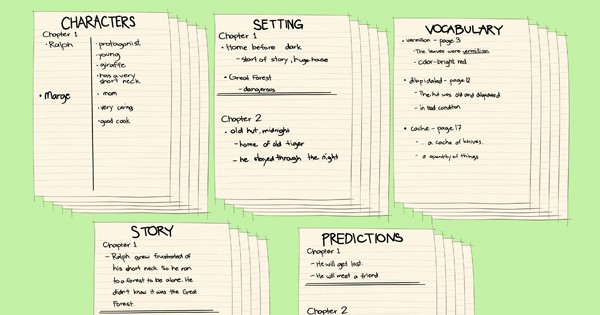 CHARACTERS
Chapter 1
• Ralph
• protagonist
• young
• giraffe
• has a very
short neck
• Marge
• mom
• very caring
• good cook
SETTING
Chapter 1
• Home before dark
- start of story, huge house
• Great Forest
- dangerous
Chapter 2
• old hut, midnight
- home of old tiger
- he stayed through the night
VOCABULARY
• vermilion - page 3
- The leaves were vermilion
- color - bright red
• dilapidated - page 12
- The hut was old and dilapidated
- in bad condition
• cache - page 17
- ... a cache of knives.
- a quantity of things
STORY
Chapter 1
- Ralph grew frustrated of
his short neck. So he ran
to a forest to be alone. He
didn't know it was the Great
Forest.
PREDICTIONS
Chapter 1
- He will get lost.
- He will meet a friend
Chapter 2